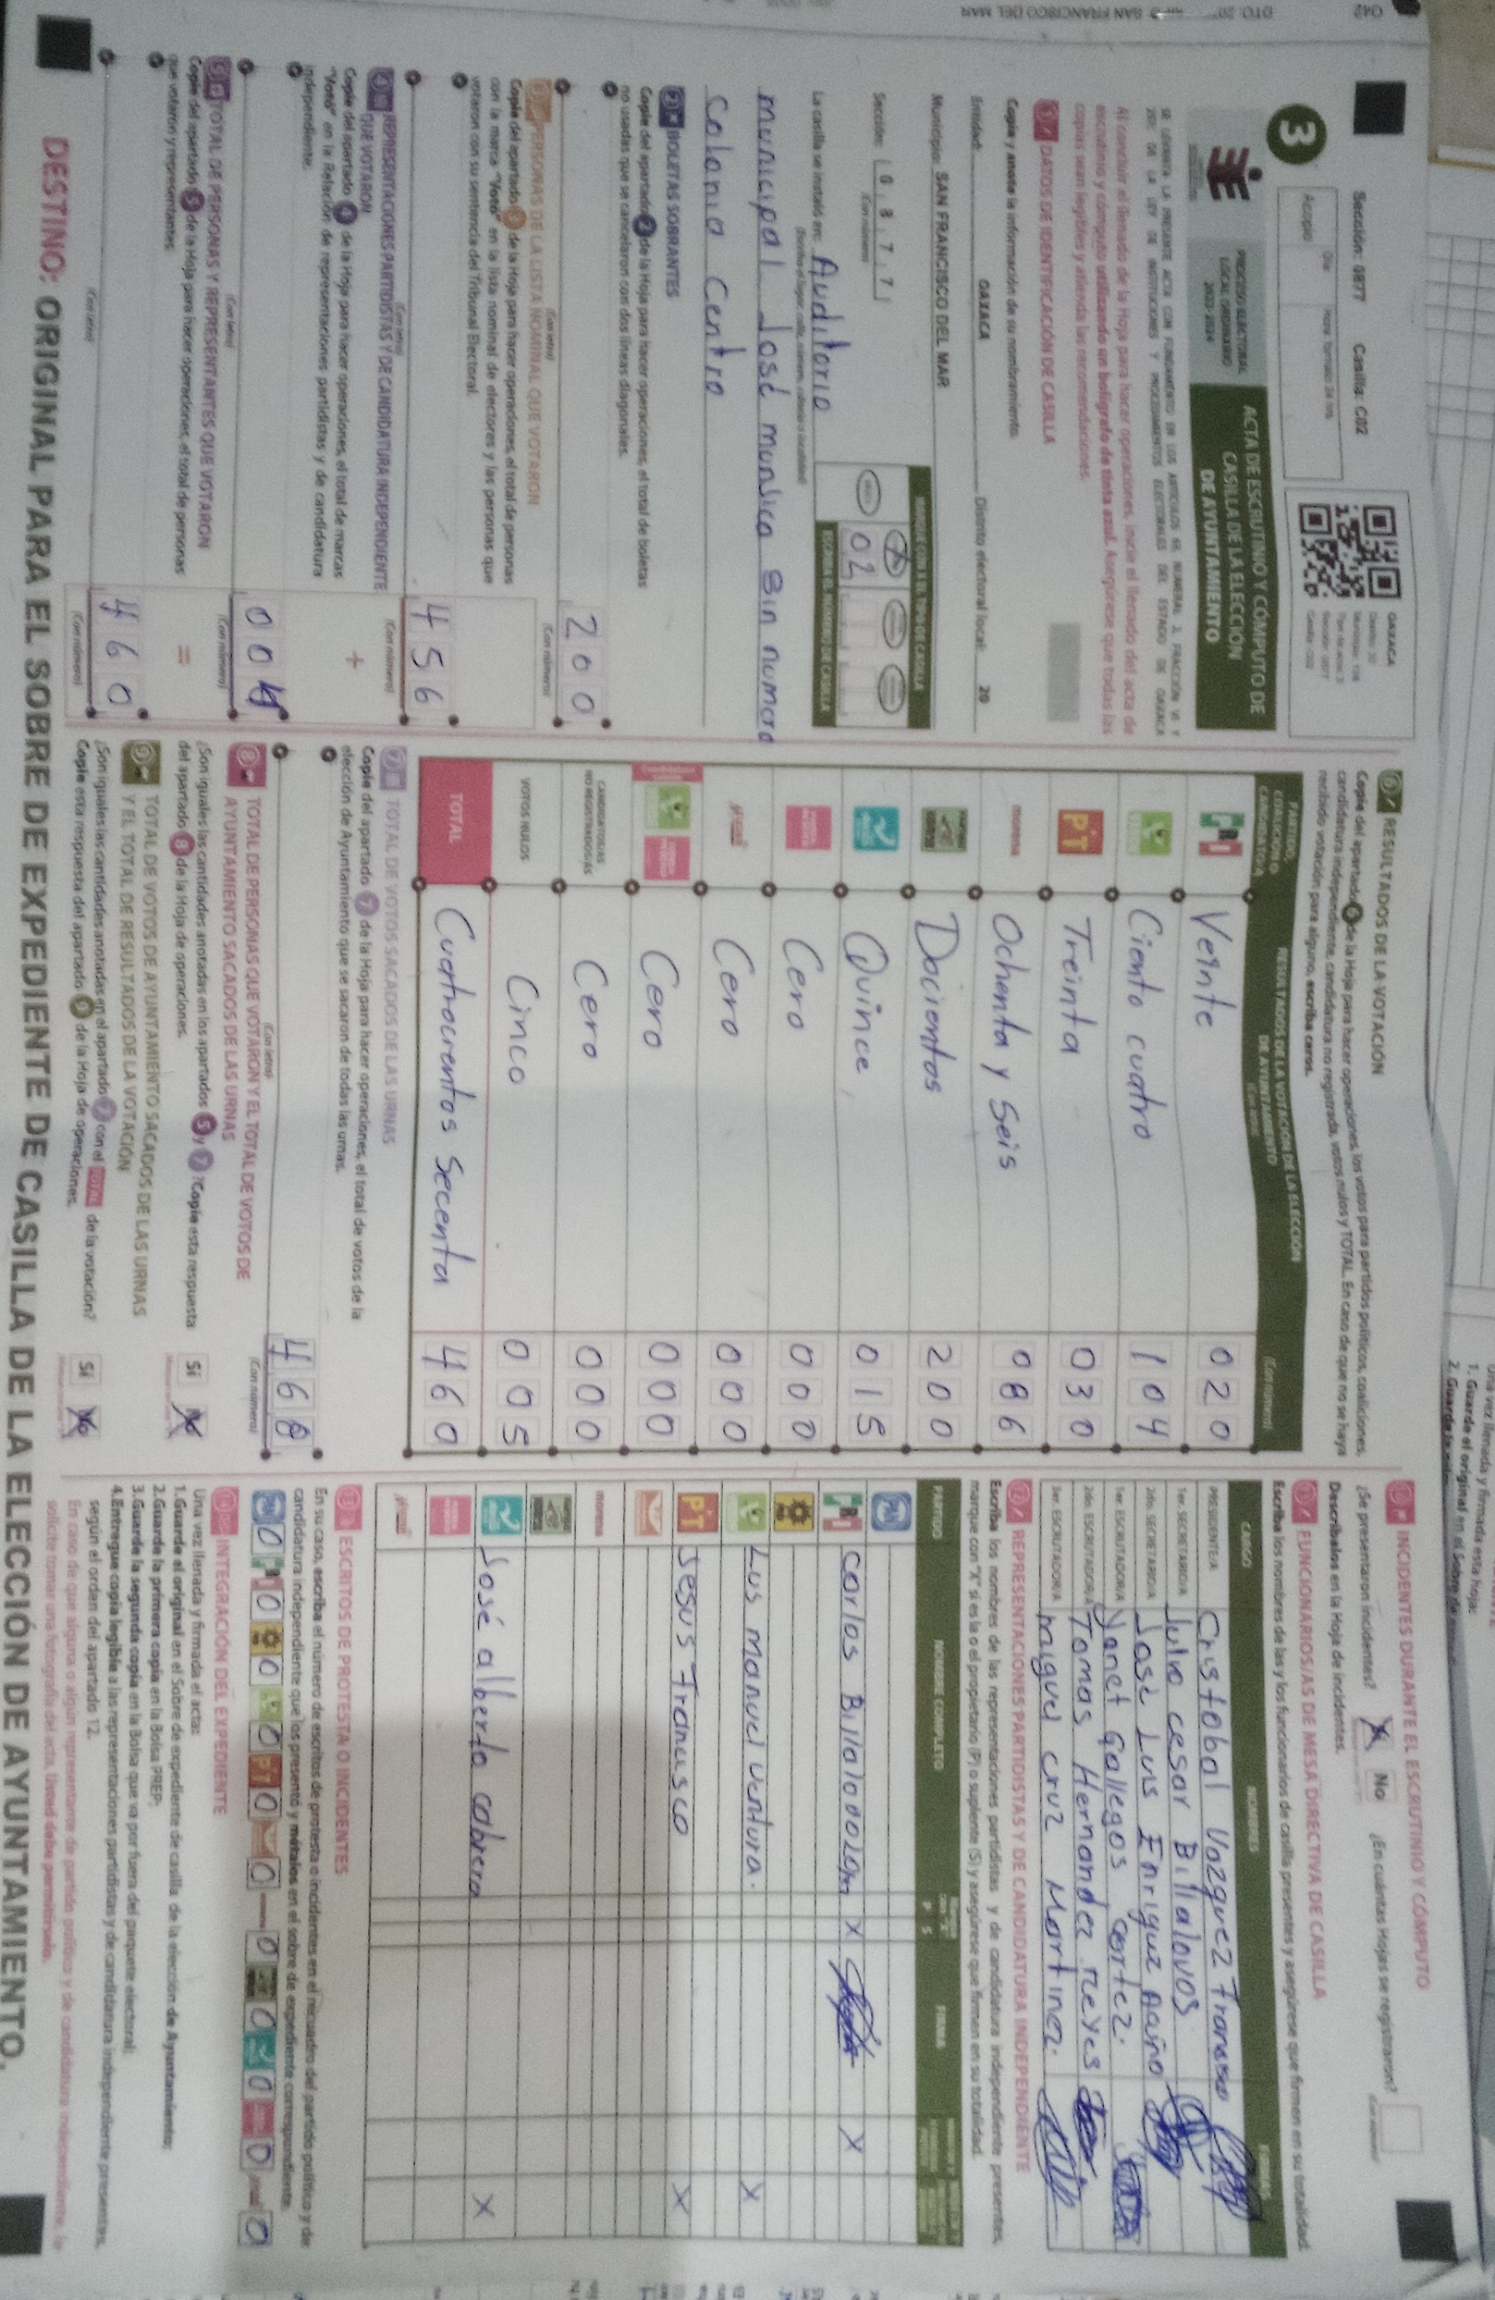 Sección: 0877 Casilla: C02
OAXACA
3
Acopio
Día
PROCESO ELECTORAL
LOCAL ORDINARIO
2023-2024
ACTA DE ESCRUTINIO Y CÓMPUTO DE
CASILLA DE LA ELECCIÓN
DE AYUNTAMIENTO
SE LEVANTA LA PRESENTE ACTA CON FUNDAMENTO EN LOS ARTÍCULOS
Al concluir el llenado de la Hoja para hacer operaciones, inicie el llenado del acta de
escrutinio y cómputo utilizando un bolígrafo de tinta azul. Asegúrese que todas las
copias sean legibles y atienda las recomendaciones.
1 DATOS DE IDENTIFICACIÓN DE CASILLA
Copie y anote la información de su nombramiento.
Entidad: OAXACA Distrito electoral local: 20
Municipio: SAN FRANCISCO DEL MAR
Sección: 0 8 7 7
(Con número)
ESCRIBA EL NÚMERO DE CASILLA
02
La casilla se instaló en: Auditorio
municipal José munsica Sin numero
Colonia Centro
2 BOLETAS SOBRANTES
Copie del apartado 2 de la Hoja para hacer operaciones, el total de boletas
no usadas que se cancelaron con dos líneas diagonales.
200
(Con letra) (Con número)
3 PERSONAS DE LA LISTA NOMINAL QUE VOTARON
Copie del apartado 3 de la Hoja para hacer operaciones, el total de personas
con la marca "Votó" en la lista nominal de electores y las personas que
votaron con su sentencia del Tribunal Electoral.
456
(Con letra) (Con número)
4 REPRESENTACIONES PARTIDISTAS Y DE CANDIDATURA INDEPENDIENTE
QUE VOTARON
Copie del apartado 4 de la Hoja para hacer operaciones, el total de marcas
"Votó" en la Relación de representaciones partidistas y de candidatura
independiente.
+
004
(Con letra) (Con número)
5 TOTAL DE PERSONAS Y REPRESENTANTES QUE VOTARON
Copie del apartado 5 de la Hoja para hacer operaciones, el total de personas
que votaron y representantes.
=
460
(Con letra) (Con número)
6 RESULTADOS DE LA VOTACIÓN
Copie del apartado 6 de la Hoja para hacer operaciones, los votos para partidos políticos, coaliciones,
candidatura independiente, candidatura no registrada, votos nulos y TOTAL. En caso de que no se haya
recibido votación para alguno, escriba ceros.
PARTIDO,
COALICIÓN O
CANDIDATO/A
RESULTADOS DE LA VOTACIÓN DE LA ELECCIÓN
DE AYUNTAMIENTO
(Con número)
PRI Veinte 020
Ciento cuatro 104
PT Treinta 030
morena Ochenta y Seis 086
Docientos 200
Quince 015
Cero 000
Cero 000
Cero 000
CANDIDATOS/AS
NO REGISTRADOS/AS Cero 000
VOTOS NULOS Cinco 005
TOTAL Cuatrocientos Secenta 460
7 TOTAL DE VOTOS SACADOS DE LAS URNAS
Copie del apartado 7 de la Hoja para hacer operaciones, el total de votos de la
elección de Ayuntamiento que se sacaron de todas las urnas.
(Con letra) (Con número)
8 TOTAL DE PERSONAS QUE VOTARON Y EL TOTAL DE VOTOS DE
AYUNTAMIENTO SACADOS DE LAS URNAS
¿Son iguales las cantidades anotadas en los apartados 5 y 7? Copie esta respuesta
del apartado 8 de la Hoja de operaciones.
Sí No
9 TOTAL DE VOTOS DE AYUNTAMIENTO SACADOS DE LAS URNAS
Y EL TOTAL DE RESULTADOS DE LA VOTACIÓN
¿Son iguales las cantidades anotadas en el apartado 7 con el TOTAL de la votación?
Copie esta respuesta del apartado 9 de la Hoja de operaciones.
Sí No
10 INCIDENTES DURANTE EL ESCRUTINIO Y CÓMPUTO
¿Se presentaron incidentes? No ¿En cuántas Hojas se registraron?
Descríbalos en la Hoja de incidentes.
11 FUNCIONARIOS/AS DE MESA DIRECTIVA DE CASILLA
Escriba los nombres de las y los funcionarios de casilla presentes y asegúrese que firmen en su totalidad.
CARGO NOMBRES FIRMAS
PRESIDENTE/A Cristobal Vazquez
1er. SECRETARIO/A Julio cesar Billalovos
2do. SECRETARIO/A José Luis Enrique
1er. ESCRUTADOR/A Yanet Gallegos cortez.
2do. ESCRUTADOR/A Tomas Hernandez Reyes
3er. ESCRUTADOR/A miguel cruz Martinez.
12 REPRESENTACIONES PARTIDISTAS Y DE CANDIDATURA INDEPENDIENTE
Escriba los nombres de las representaciones partidistas y de candidatura independiente presentes,
marque con "X" si es la o el propietario (P) o suplente (S) y asegúrese que firmen en su totalidad.
PARTIDO NOMBRE COMPLETO P S FIRMA
PAN
PRI carlos X X
Luis manuel ventura. X
PT Jesus Francisco X
morena
José alberto cabrera X
13 ESCRITOS DE PROTESTA O INCIDENTES
En su caso, escriba el número de escritos de protesta o incidentes en el recuadro del partido político y de
candidatura independiente que los presentó y métalos en el sobre de expediente correspondiente.
PAN 0 PRI 0 0 0 PT 0 0 0 0 0 0 0
14 INTEGRACIÓN DEL EXPEDIENTE
Una vez llenada y firmada el acta:
1.Guarde el original en el Sobre de expediente de casilla de la elección de Ayuntamiento;
2.Guarde la primera copia en la Bolsa PREP;
3.Guarde la segunda copia en la Bolsa que va por fuera del paquete electoral;
4.Entregue copia legible a las representaciones partidistas y de candidatura independiente presentes,
según el orden del apartado 12.
En caso de que alguna o algún representante de partido político y de candidatura independiente, le
solicite tomar una fotografía del acta, Usted debe permitírselo.
DESTINO: ORIGINAL PARA EL SOBRE DE EXPEDIENTE DE CASILLA DE LA ELECCIÓN DE AYUNTAMIENTO.